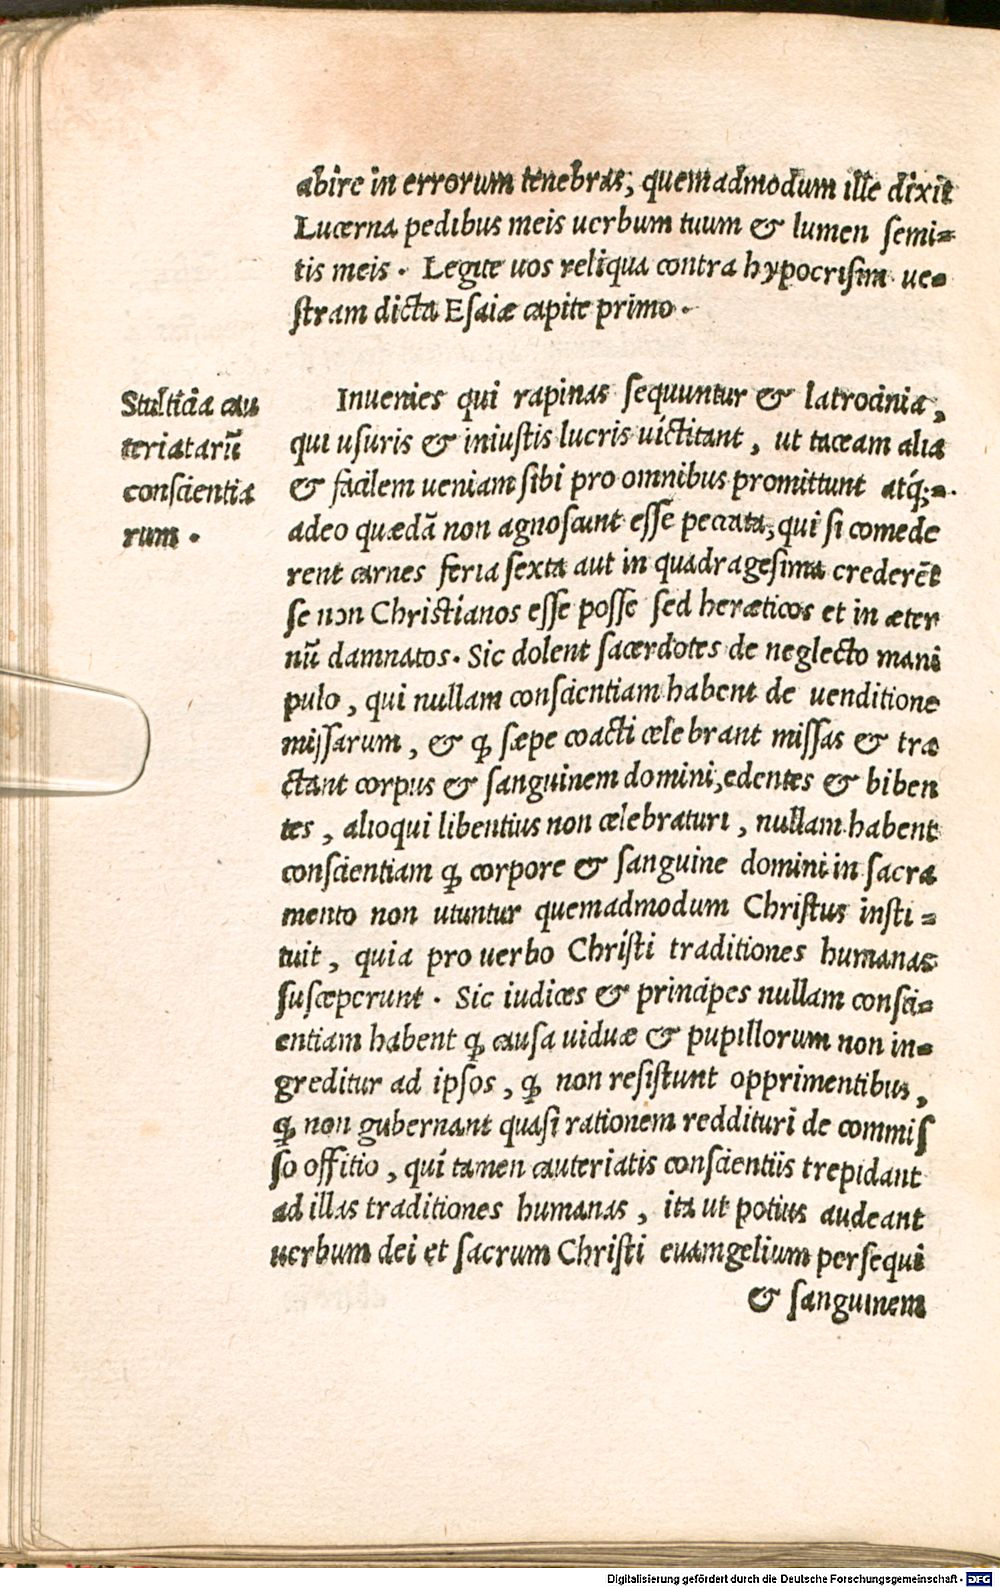 abire in errorum tenebras, quemadmodum ille dixit
Lucerna pedibus meis uerbum tuum & lumen semi-
tis meis. Legite uos reliqua contra hypocrisim ue-
stram dicta Esaiæ capite primo.
Stulticia cau
teriatarū
conscientia
rum.
Inuenies qui rapinas sequuntur & latrocinia,
qui usuris & iniustis lucris uictitant, ut taceam alia
& facilem ueniam sibi pro omnibus promittunt atq́;
adeo quædā non agnoscunt esse peccata, qui si comede
rent carnes feria sexta aut in quadragesima crederēt
se non Christianos esse posse sed hæreticos et in æter
nū damnatos. Sic dolent sacerdotes de neglecto mani
pulo, qui nullam conscientiam habent de uenditione
missarum, & ꝙ sæpe coacti celebrant missas & tra
ctant corpus & sanguinem domini, edentes & biben
tes, alioqui libentius non celebraturi, nullam habent
conscientiam ꝙ corpore & sanguine domini in sacra
mento non utuntur quemadmodum Christus insti-
tuit, quia pro uerbo Christi traditiones humanas
susceperunt. Sic iudices & principes nullam consci-
entiam habent ꝙ causa uiduæ & pupillorum non in-
greditur ad ipsos, ꝙ non resistunt opprimentibus,
ꝙ non gubernant quasi rationem reddituri de commis
so offitio, qui tamen cauteriatis conscientiis trepidant
ad illas traditiones humanas, ita ut potius audeant
uerbum dei et sacrum Christi euamgelium persequi
& sanguinem
Digitalisierung gefördert durch die Deutsche Forschungsgemeinschaft - DFG